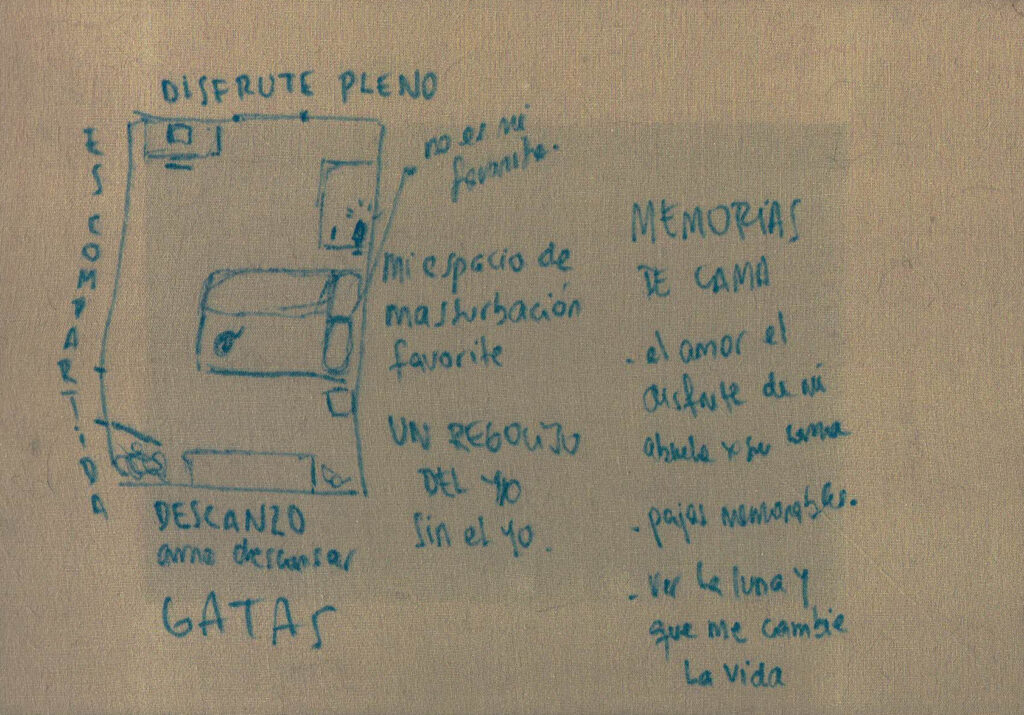 DISFRUTE PLENO
ES COMPARTIDA
no es mi
favorite.
mi espacio de
masturbación
favorite
UN REGOCIJO
DEL YO
sin el yo.
DESCANZO
descansar
GATAS
MEMORIAS
DE CAMA
- el amor el
disfrute de mi
abuela x su cama
- pajas memorables.
- ver la luna y
que me cambie
la vida